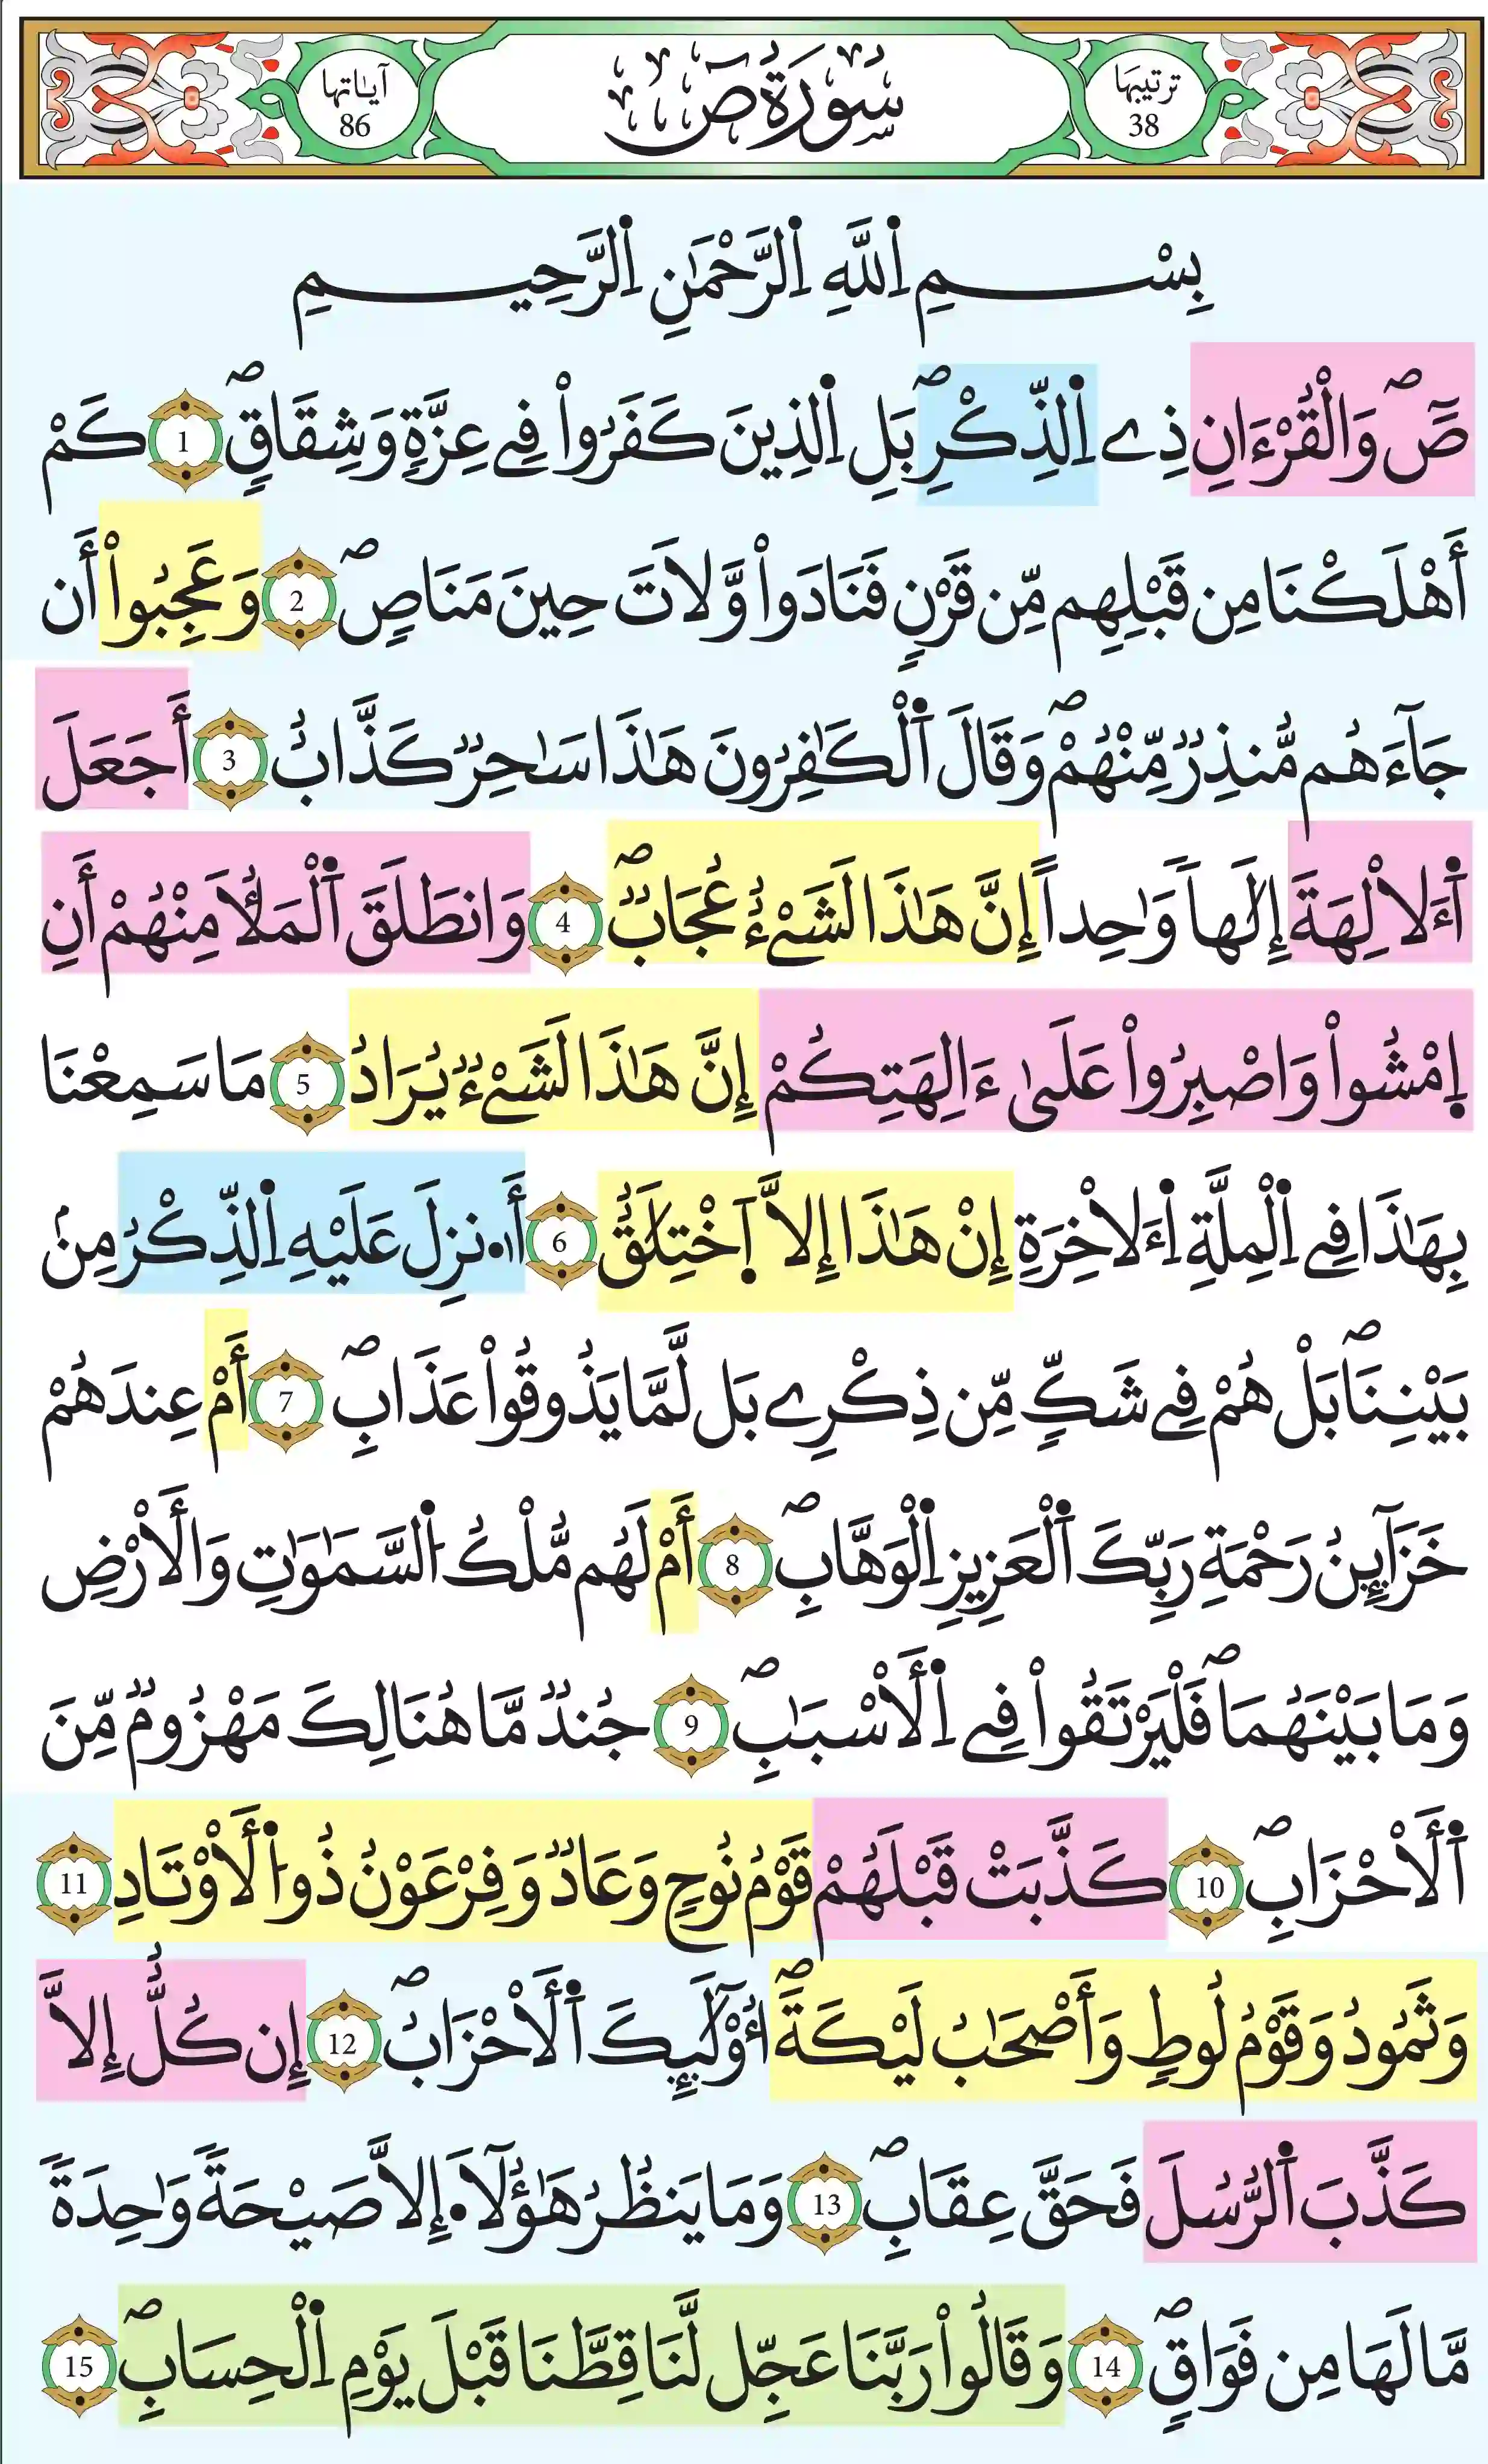 ترتيبها 38 سُورَةُ صٓ آياتها 86
بِسْمِ اِ۬للَّهِ اِ۬لرَّحْمَٰنِ اِ۬لرَّحِيمِ
صَٓۖ وَالْقُرْءَانِ ذِے اِ۬لذِّكْرِۖ بَلِ اِ۬لذِينَ كَفَرُواْ فِے عِزَّةٖ وَشِقَاقٖۖ 1 كَمْ
أَهْلَكْنَا مِن قَبْلِهِم مِّن قَرْنٖ فَنَادَواْ وَّلَاتَ حِينَ مَنَاصٖۖ 2 وَعَجِبُواْ أَن
جَآءَهُم مُّنذِرٞ مِّنْهُمْۖ وَقَالَ اَ۬لْكَٰفِرُونَ هَٰذَا سَٰحِرٞ كَذَّابٌ 3 أَجَعَلَ
اَ۬لَالِهَةَ إِلَٰهاٗ وَٰحِداًۖ إِنَّ هَٰذَا لَشَےْءٌ عُجَابٞۖ 4 وَانطَلَقَ اَ۬لْمَلَأُ مِنْهُمُۥٓ أَنِ
اِ۪مْشُواْ وَاصْبِرُواْ عَلَىٰٓ ءَالِهَتِكُمُۥٓ إِنَّ هَٰذَا لَشَےْءٞ يُرَادُ 5 مَا سَمِعْنَا
بِهَٰذَا فِے اِ۬لْمِلَّةِ اِ۬لَاخِرَةِ إِنْ هَٰذَآ إِلَّا اَ۪خْتِلَٰقٌ 6 أَ.نزِلَ عَلَيْهِ اِ۬لذِّكْرُ مِنۢ
بَيْنِنَاۖ بَلْ هُمْ فِے شَكّٖ مِّن ذِكْرِے بَل لَّمَّا يَذُوقُواْ عَذَابِۖ 7 أَمْ عِندَهُمْ
خَزَآئِنُ رَحْمَةِ رَبِّكَ اَ۬لْعَزِيزِ اِ۬لْوَهَّابِۖ 8 أَمْ لَهُم مُّلْكُ اُ۬لسَّمَٰوَٰتِ وَالَارْضِ
وَمَا بَيْنَهُمَاۖ فَلْيَرْتَقُواْ فِے اِ۬لَاسْبَٰبِۖ 9 جُندٞ مَّا هُنَالِكَ مَهْزُومٞ مِّنَ
اَ۬لَاحْزَابِۖ 10 كَذَّبَتْ قَبْلَهُمْ قَوْمُ نُوحٖ وَعَادٞ وَفِرْعَوْنُ ذُو اُ۬لَاوْتَادِ 11
وَثَمُودُ وَقَوْمُ لُوطٖ وَأَصْحَٰبُ لَيْكَةَۖ أُوْلَٰٓئِكَ اَ۬لَاحْزَابُۖ 12 إِن كُلٌّ اِلَّا
كَذَّبَ اَ۬لرُّسُلَ فَحَقَّ عِقَابِۖ 13 وَمَا يَنظُرُ هَٰٓؤُلَآ. اِلَّا صَيْحَةٗ وَٰحِدَةٗ
مَّا لَهَا مِن فَوَاقٖۖ 14 وَقَالُواْ رَبَّنَا عَجِّل لَّنَا قِطَّنَا قَبْلَ يَوْمِ اِ۬لْحِسَابِۖ 15